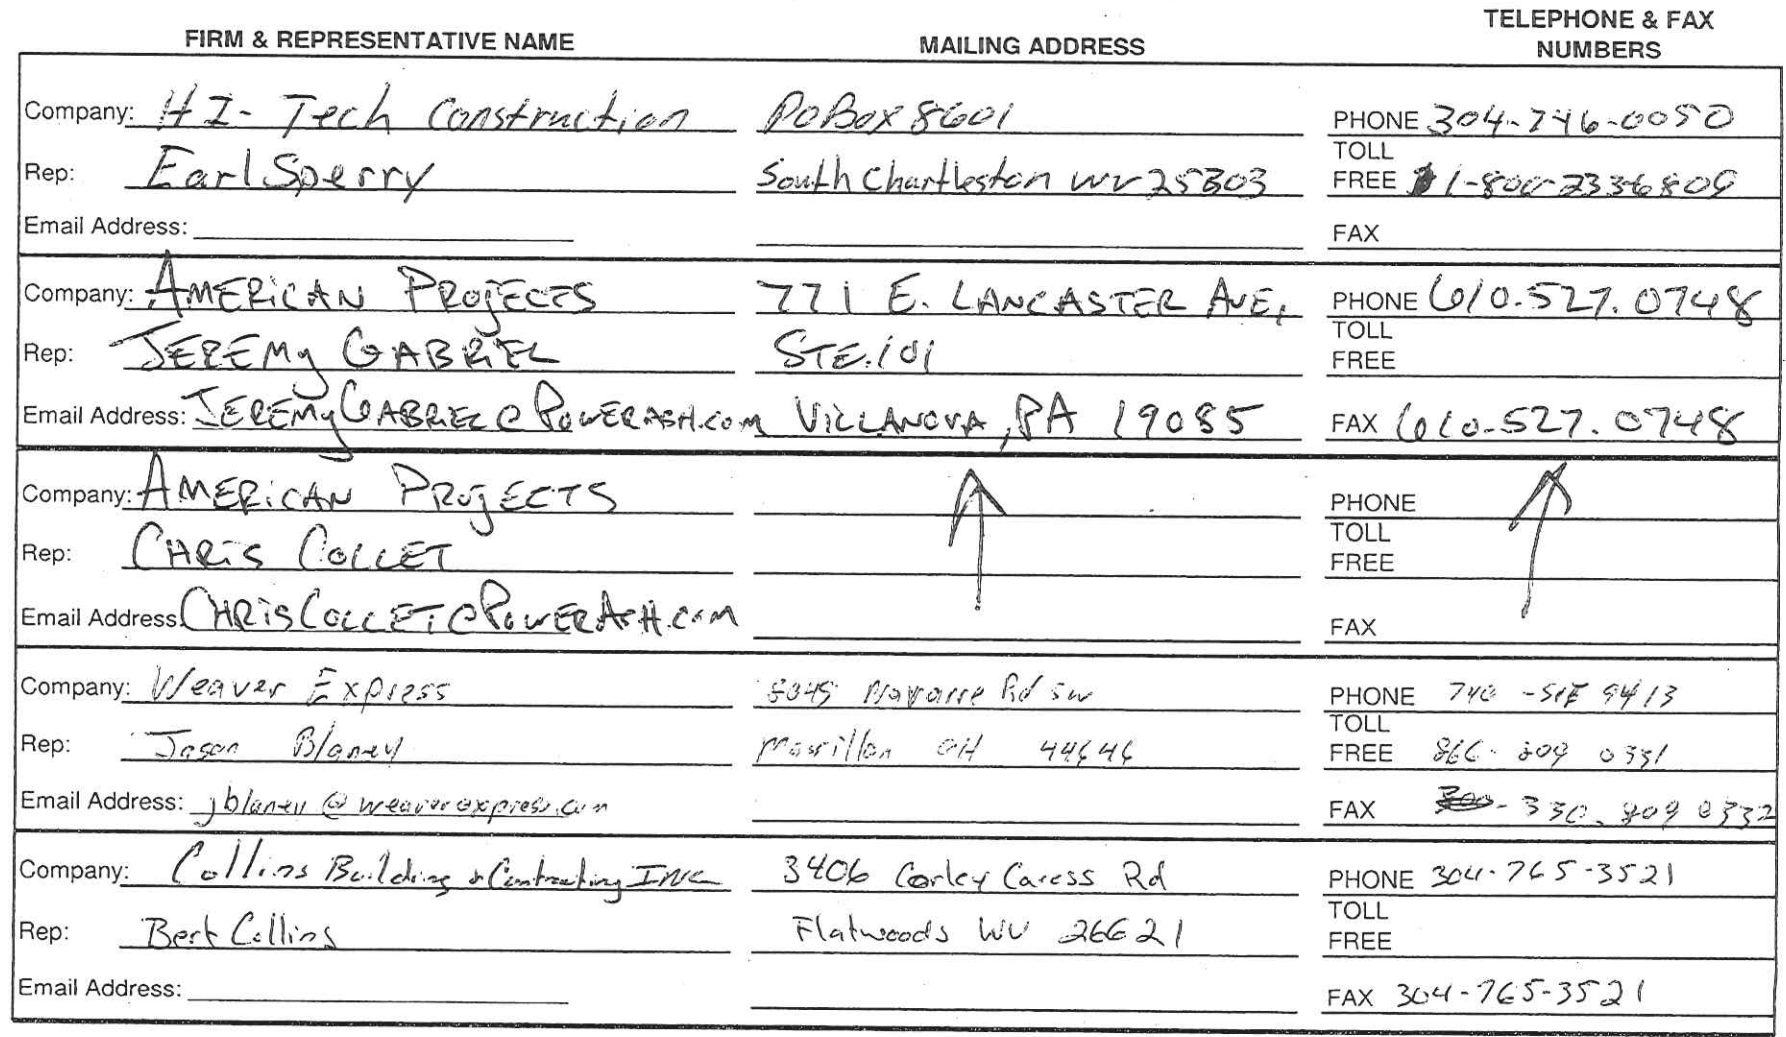 FIRM & REPRESENTATIVE NAME MAILING ADDRESS TELEPHONE & FAX NUMBERS
Company: HI-Tech Construction PO Box 8601 PHONE 304-746-0050
Rep: Earl Sperry South Chartleston WV 25303 TOLL FREE 1-800-2336809
Email Address: FAX
Company: AMERICAN PROJECTS 771 E. LANCASTER AVE, PHONE 610.527.0748
Rep: JEREMY GABRIEL STE. 101 TOLL FREE
Email Address: JEREMYGABRIEL@POWERASH.COM VILLANOVA, PA 19085 FAX 610.527.0748
Company: AMERICAN PROJECTS PHONE
Rep: CHRIS COLLET TOLL FREE
Email Address: CHRISCOLLET@POWERASH.COM FAX
Company: Weaver Express Navarre Rd SW PHONE 740 - 9413
Rep: Jason Blaney Massillon OH 44646 TOLL FREE 866- 809 0331
Email Address: jblaney@weaverexpress.com FAX - 330.809 0332
Company: Collins Building & Contracting INC 3406 Corley Caress Rd PHONE 304-765-3521
Rep: Bert Collins Flatwoods WV 26621 TOLL FREE
Email Address: FAX 304-765-3521